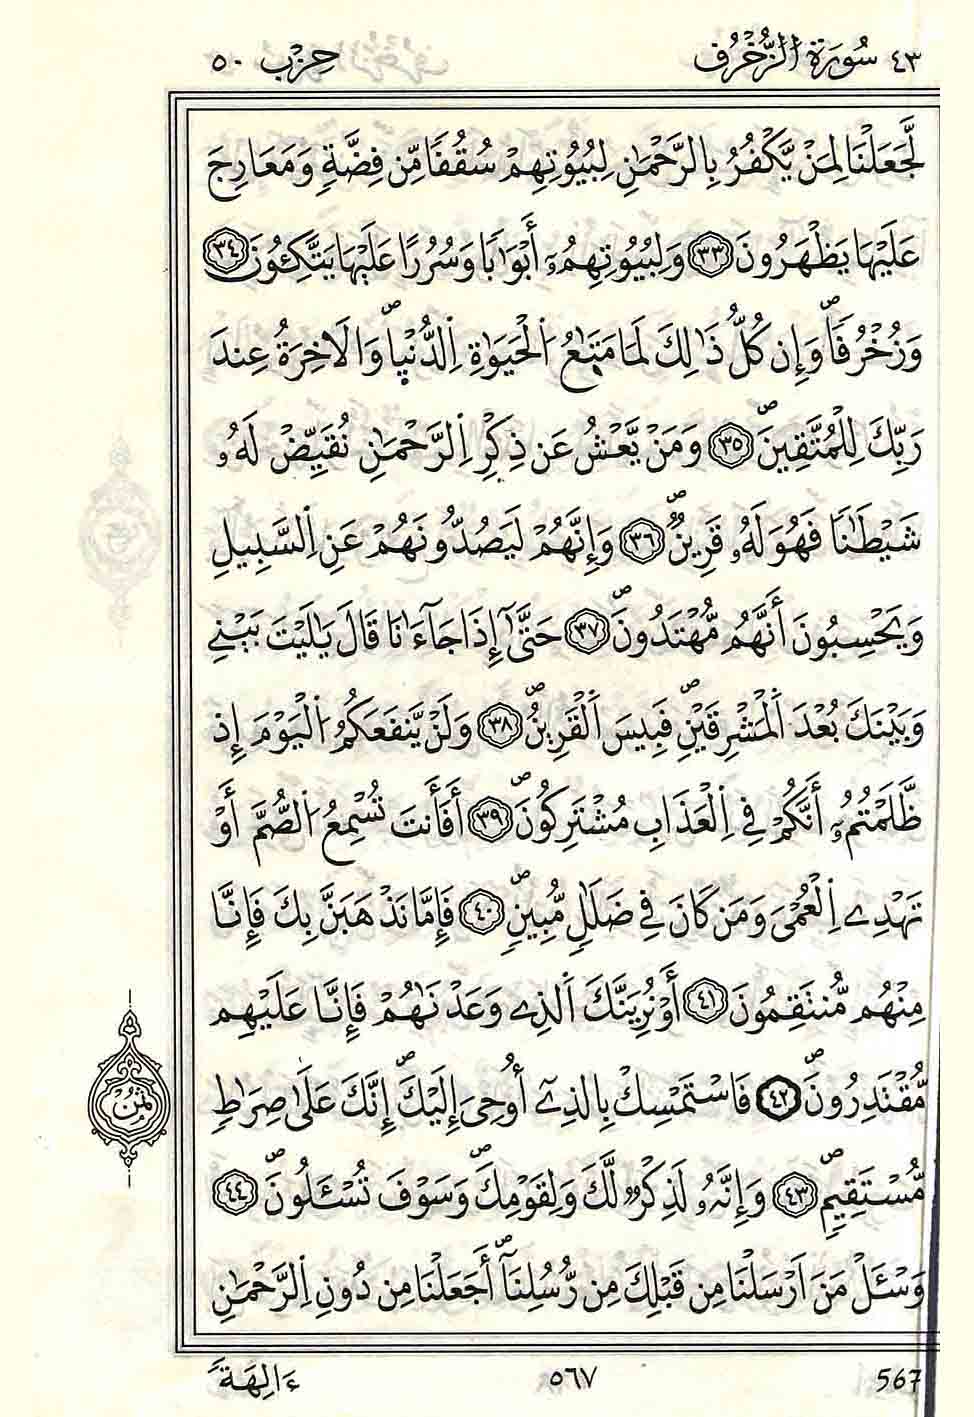 ٤٣ سُورَةُ الزُّخْرُف حِزْب ٥٠
لَّجَعَلْنَا لِمَنْ يَّكْفُرُ بِالرَّحْمَٰنِ لِبُيُوتِهِمْ سُقُفًا مِّن فِضَّةٍ وَمَعَارِجَ
عَلَيْهَا يَظْهَرُونَ ٣٣ وَلِبُيُوتِهِمُۥٓ أَبْوَٰبًا وَسُرُرًا عَلَيْهَا يَتَّكِـُٔونَ ٣٤
وَزُخْرُفًاۖ وَإِن كُلُّ ذَٰلِكَ لَمَا مَتَٰعُ اُ۬لْحَيَوٰةِ اِ۬لدُّنْي۪اۖ وَالَاخِرَةُ عِندَ
رَبِّكَ لِلْمُتَّقِينَۖ ٣٥ وَمَنْ يَّعْشُ عَن ذِكْرِ اِ۬لرَّحْمَٰنِ نُقَيِّضْ لَهُۥ
شَيْطَٰنًا فَهُوَ لَهُۥ قَرِينٌۖ ٣٦ وَإِنَّهُمْ لَيَصُدُّونَهُمْ عَنِ اِ۬لسَّبِيلِ
وَيَحْسِبُونَ أَنَّهُم مُّهْتَدُونَۖ ٣٧ حَتَّىٰٓ إِذَا جَآءَٰنَا قَالَ يَٰلَيْتَ بَيْنِے
وَبَيْنَكَ بُعْدَ اَ۬لْمَشْرِقَيْنِۖ فَبِيسَ اَ۬لْقَرِينُۖ ٣٨ وَلَنْ يَّنفَعَكُمُ اُ۬لْيَوْمَ إِذ
ظَّلَمْتُمُۥٓ أَنَّكُمْ فِے اِ۬لْعَذَابِ مُشْتَرِكُونَۖ ٣٩ أَفَأَنتَ تُسْمِعُ اُ۬لصُّمَّ أَوْ
تَهْدِے اِ۬لْعُمْيَ وَمَن كَانَ فِے ضَلَٰلٖ مُّبِينٖۖ ٤٠ فَإِمَّا نَذْهَبَنَّ بِكَ فَإِنَّا
مِنْهُم مُّنتَقِمُونَ ٤١ أَوْ نُرِيَنَّكَ اَ۬لذِے وَعَدْنَٰهُمْ فَإِنَّا عَلَيْهِم
مُّقْتَدِرُونَۖ ٤٢ فَاسْتَمْسِكْ بِالذِےٓ أُوحِيَ إِلَيْكَۖ إِنَّكَ عَلَىٰ صِرَٰطٖ
مُّسْتَقِيمٖۖ ٤٣ وَإِنَّهُۥ لَذِكْرٌ لَّكَ وَلِقَوْمِكَۖ وَسَوْفَ تُسْـَٔلُونَۖ ٤٤
ثُمُن
وَسْـَٔلْ مَنَ اَرْسَلْنَا مِن قَبْلِكَ مِن رُّسُلِنَآۖ أَجَعَلْنَا مِن دُونِ اِ۬لرَّحْمَٰنِ
ءَالِهَةً ٥٦٧ 567